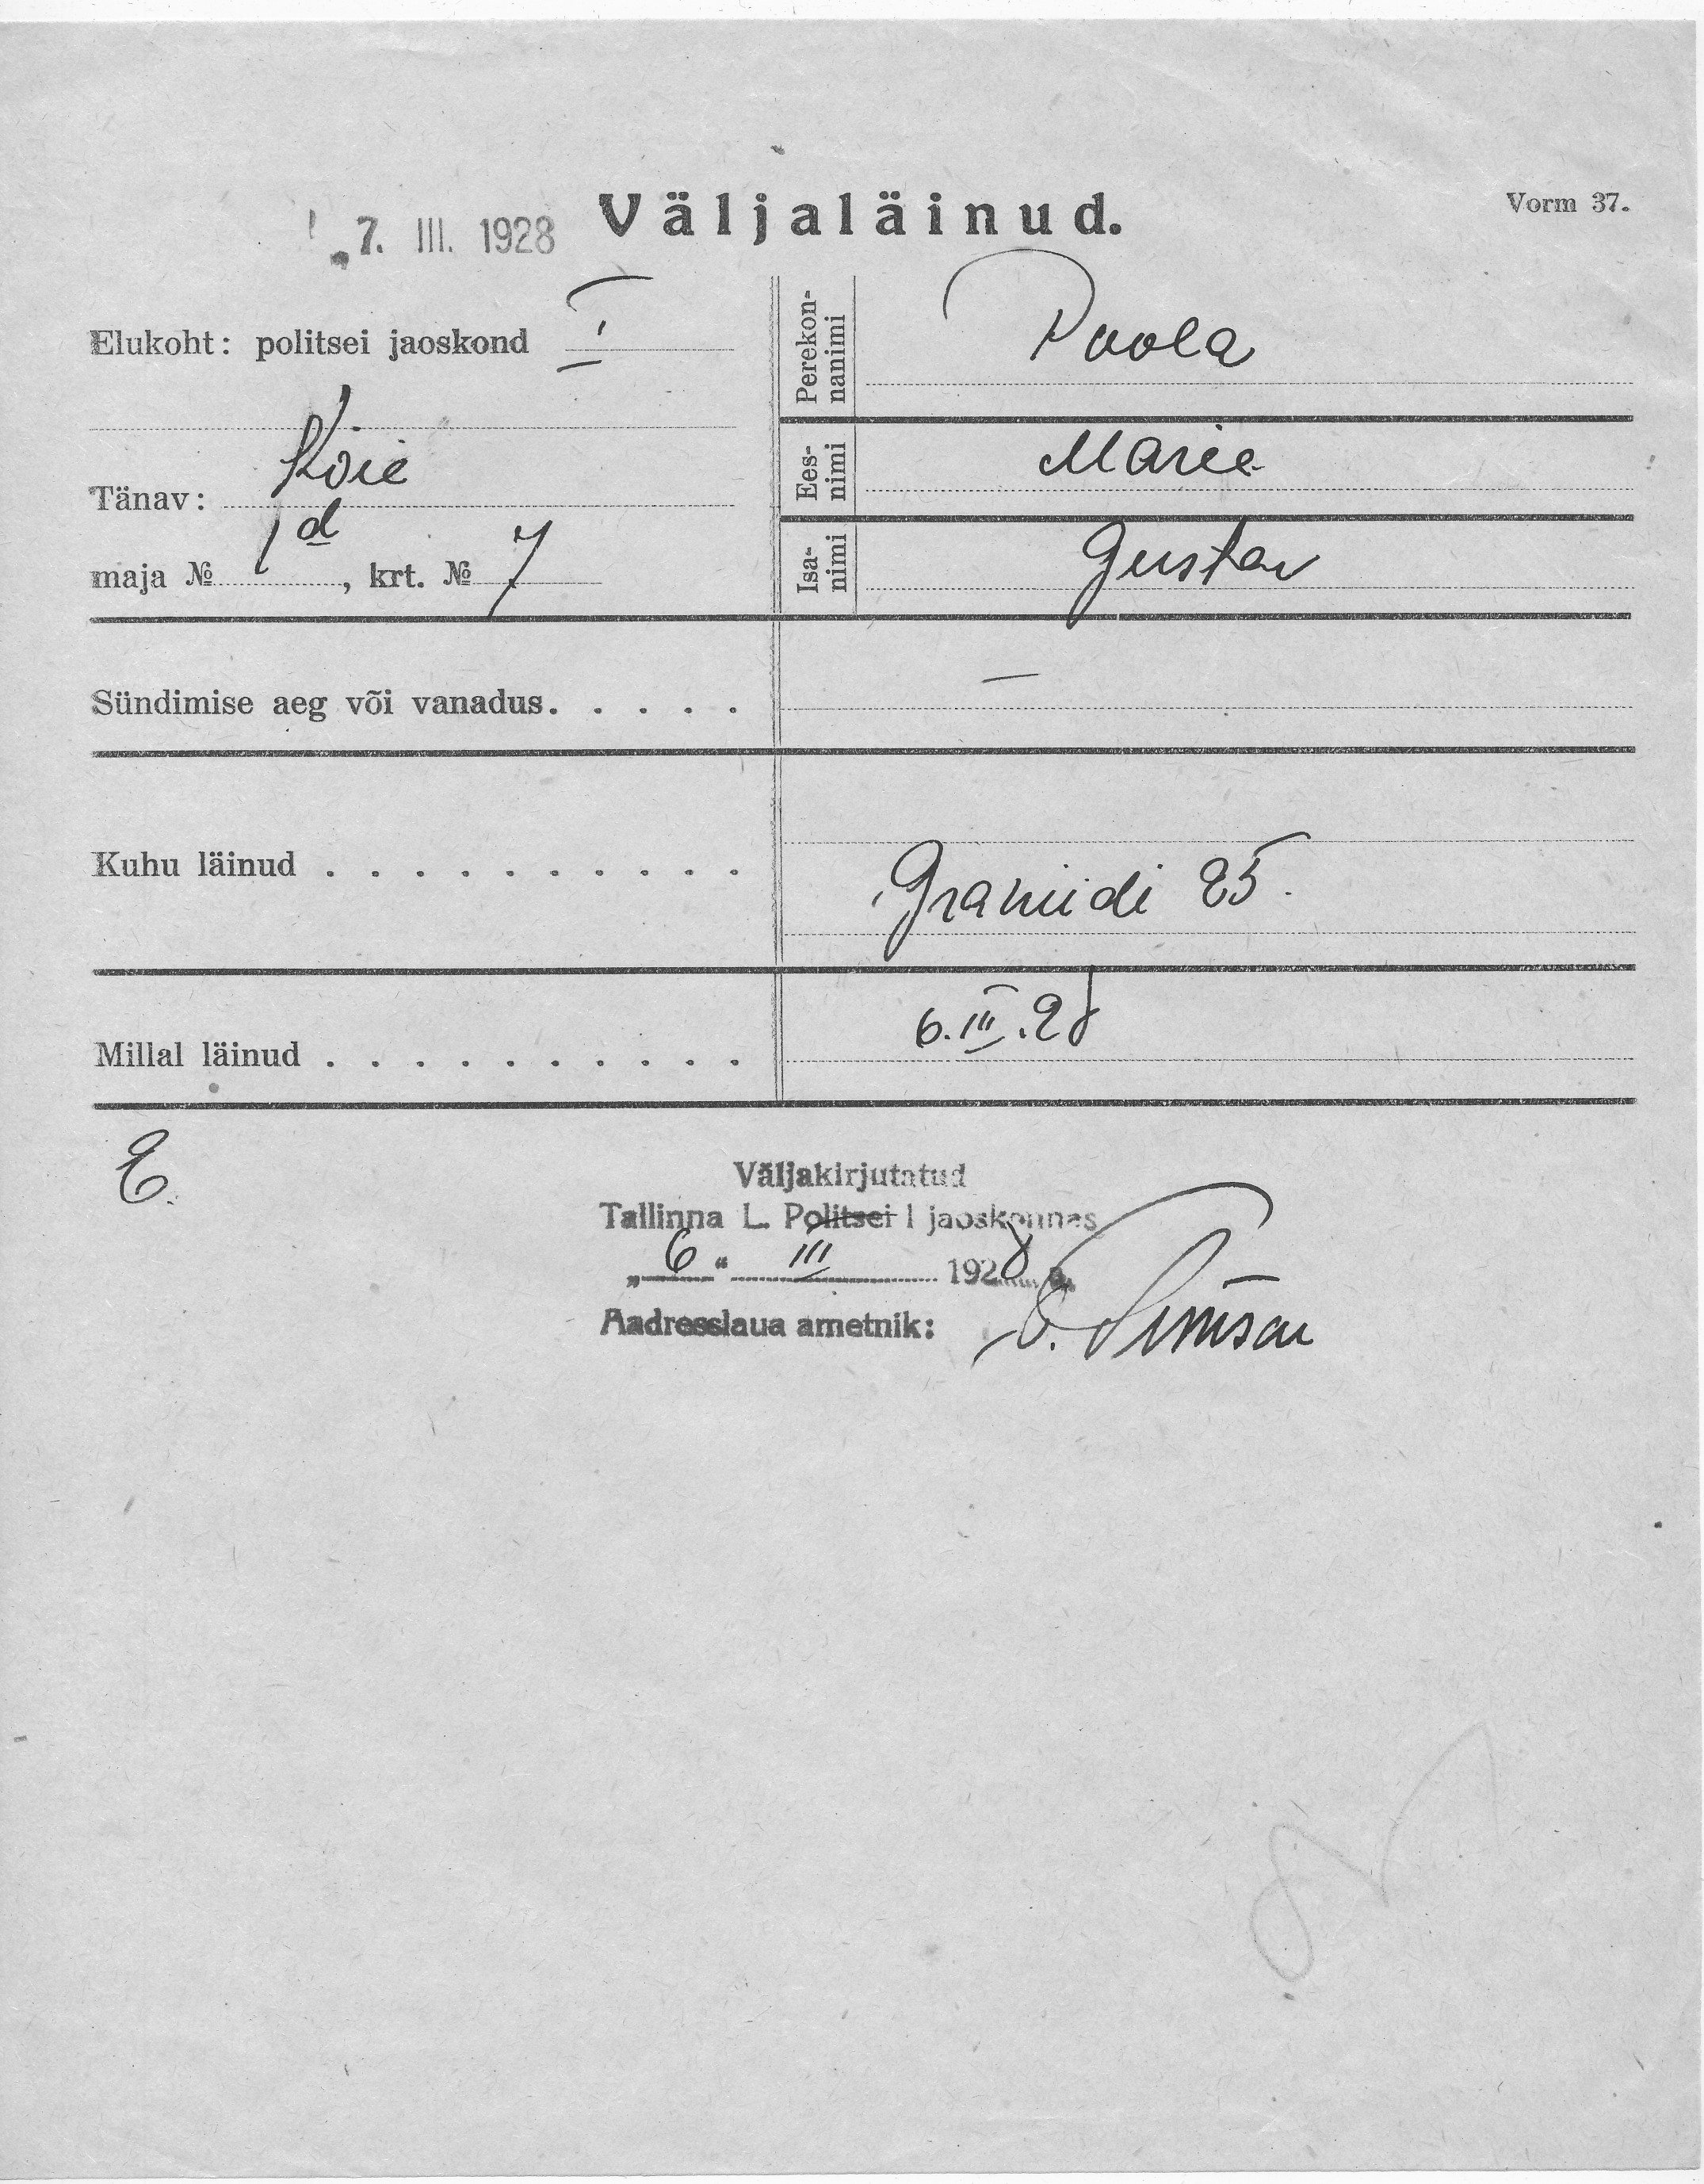 7. III. 1928 Väljaläinud. Vorm 37.
Elukoht: politsei jaoskond I
Tänav: Köie
maja № 1d, krt. № 7
Perekon-
nanimi Poola
Ees-
nimi Marie
Isa-
nimi Gustav
Sündimise aeg või vanadus. . . . . —
Kuhu läinud . . . . . . . . . . Graniidi 25.
Millal läinud . . . . . . . . . . 6.III.28
E.
Väljakirjutatud
Tallinna L. Politsei I jaoskonnas
„6“ III 1928 a.
Aadresslaua ametnik: